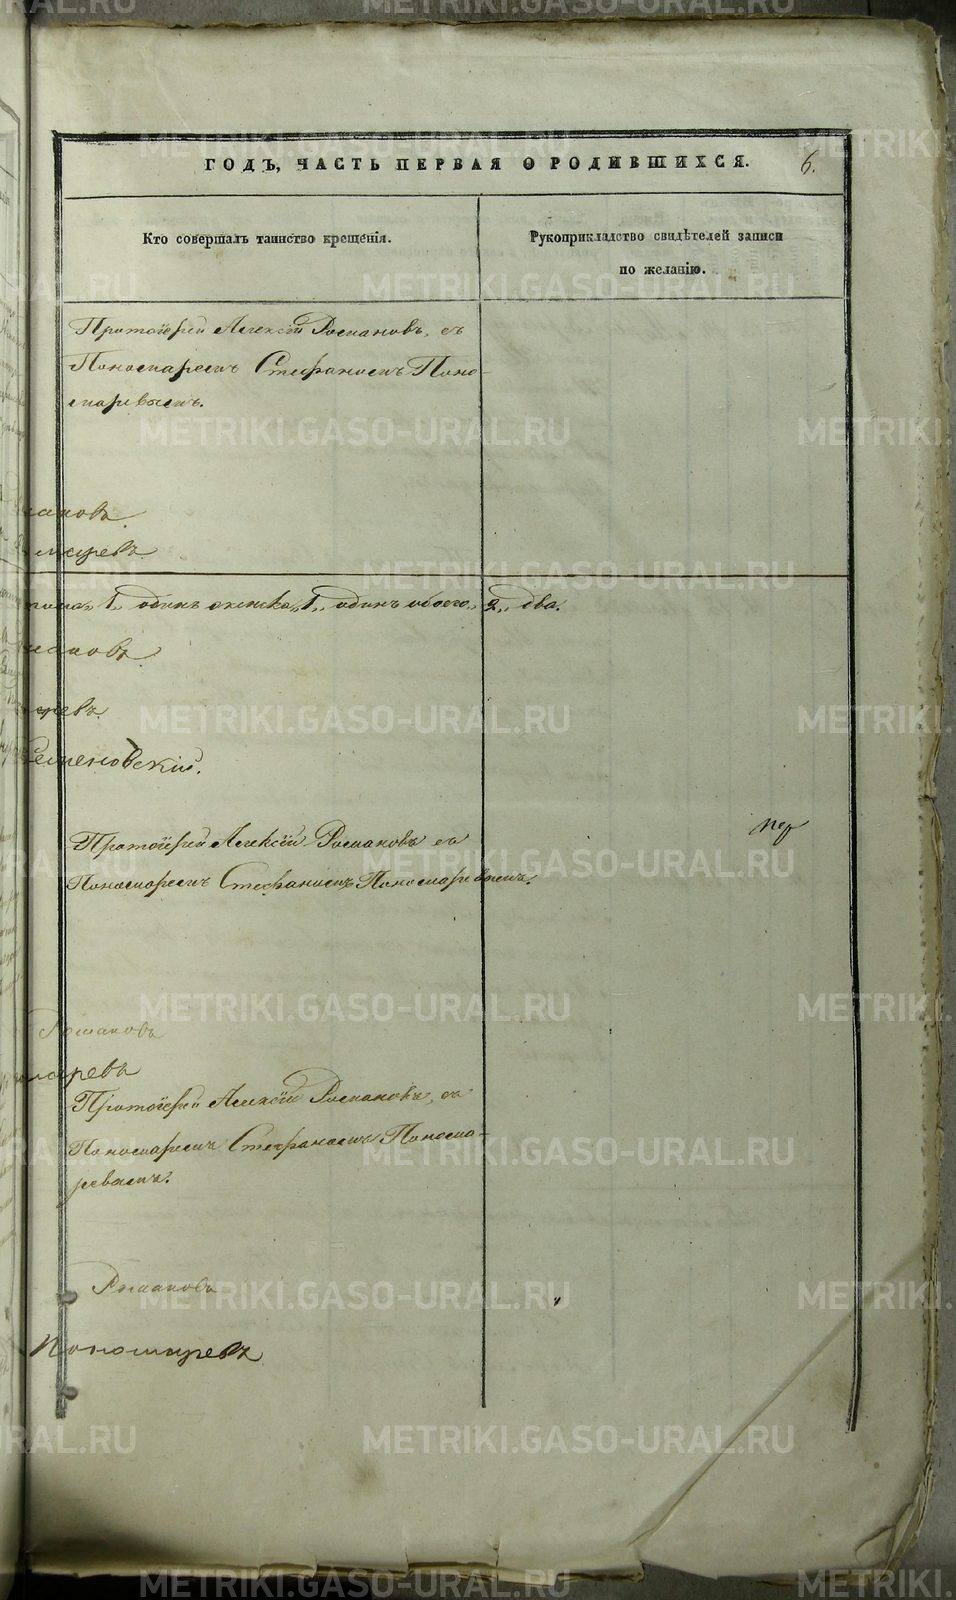 ГОДЪ, ЧАСТЬ ПЕРВАЯ О РОДИВШИХСЯ. 6.
Кто совершалъ таинство крещенія.
Рукоприкладство свидѣтелей записи
по желанію.
Протоіерей Алексій Романовъ, съ
Пономаремъ Стефаномъ Поно-
маревымъ.
мановъ
марев
1, одинъ женска, 1, одинъ обоего, 2, два.
мановъ
ревъ.
Семеновскій.
Протоіерей Алексій Романовъ съ
Пономаремъ Стефаномъ Пономаревымъ.
Романовъ
маревъ
Протоіерей Алексій Романовъ, съ
Пономаремъ Стефаномъ Понома-
ревымъ.
Романовъ
Пономаревъ
METRIKI.GASO-URAL.RU